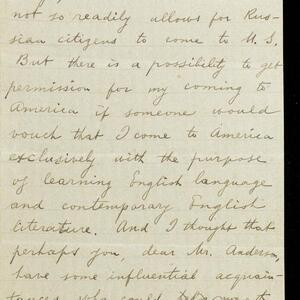 not so readily allows for Rus-
sian citizens to come to U. S.
But there is a possibility to get
permission for my coming to
America if someone would
vouch that I come to America
exclusively with the purpose
of learning English language
and contemporary English
literature. And I thought that
perhaps you, dear Mr. Anderson,
have some influential acquain-
tances who could